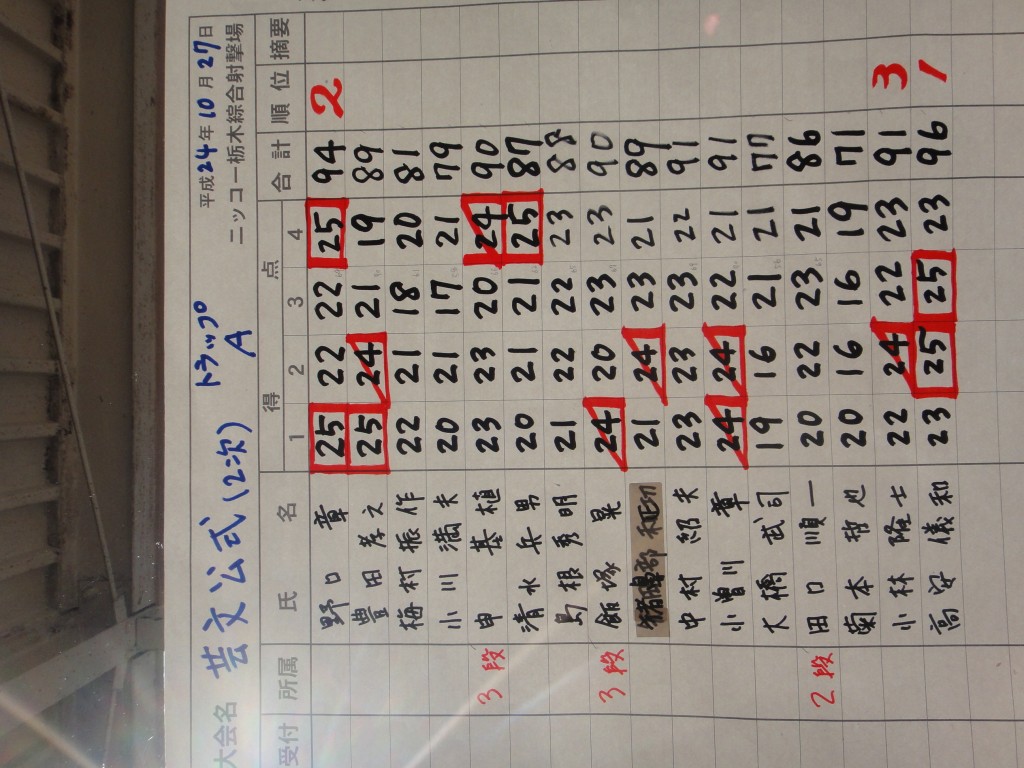 大会名 芸文公式(2次) トラップ A 平成24年10月27日 ニッコー栃木綜合射撃場
受付 所属 氏名 得点 合計 順位 摘要
1 2 3 4
野口 章 25 22 22 25 94 2
豊田 孝文 25 24 21 19 89
梅村 振作 22 21 18 20 81
小川 満夫 20 21 17 21 79
3段 申 基植 23 23 20 24 90
清水 兵男 20 21 21 25 87
島根 秀明 21 22 22 23 88
3段 飯塚 晃 24 20 23 23 90
猪鼻部 21 24 23 21 89
中村 紹夫 23 23 23 22 91
小曽川 章 24 24 22 21 91
大橋 武司 19 16 21 21 77
2段 田口 順一 20 22 23 21 86
菊本 哲也 20 16 16 19 71
小林 隆士 22 24 22 23 91 3
高安 儀和 23 25 25 23 96 1